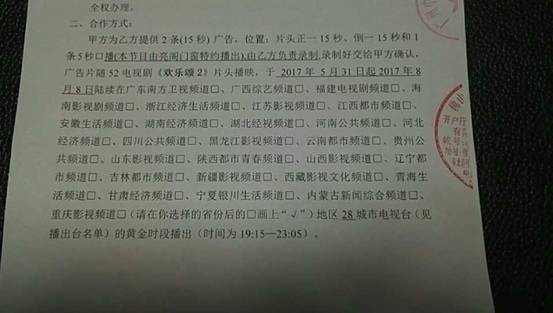 全权办理。
二、合作方式：
甲方为乙方提供 2 条(15 秒) 广告，位置：片头正一 15 秒、倒一 15 秒和 1
条 5 秒口播(本节目由亮阁门窗特约播出),由乙方负责录制,录制好交给甲方确认，
广告片随 52 电视剧《欢乐颂 2》片头播映，于 2017 年 5 月 31 日起 2017 年 8
月 8 日陆续在广东南方卫视频道□、广西综艺频道□、福建电视频道□、海
南影视剧频道□、浙江经济生活频道□、江苏影视频道□、江西都市频道□、
安徽生活频道□、湖南经济频道□、湖北经视频道□、河南公共频道□、河北
经济频道□、四川公共频道□、黑龙江影视频道□、云南都市频道□、贵州公
共频道□、山东影视频道□、陕西都市青春频道□、山西影视频道□、辽宁都
市频道□、吉林都市频道□、新疆影视频道□、西藏影视文化频道□、青海生
活频道□、甘肃经济频道□、宁夏银川生活频道□、内蒙古新闻综合频道□、
重庆影视频道□（请在你选择的省份后的□画上“√”）地区 28 城市电视台（见
播出台名单）的黄金时段播出（时间为 19:15—23:05）。
佛山
开户行